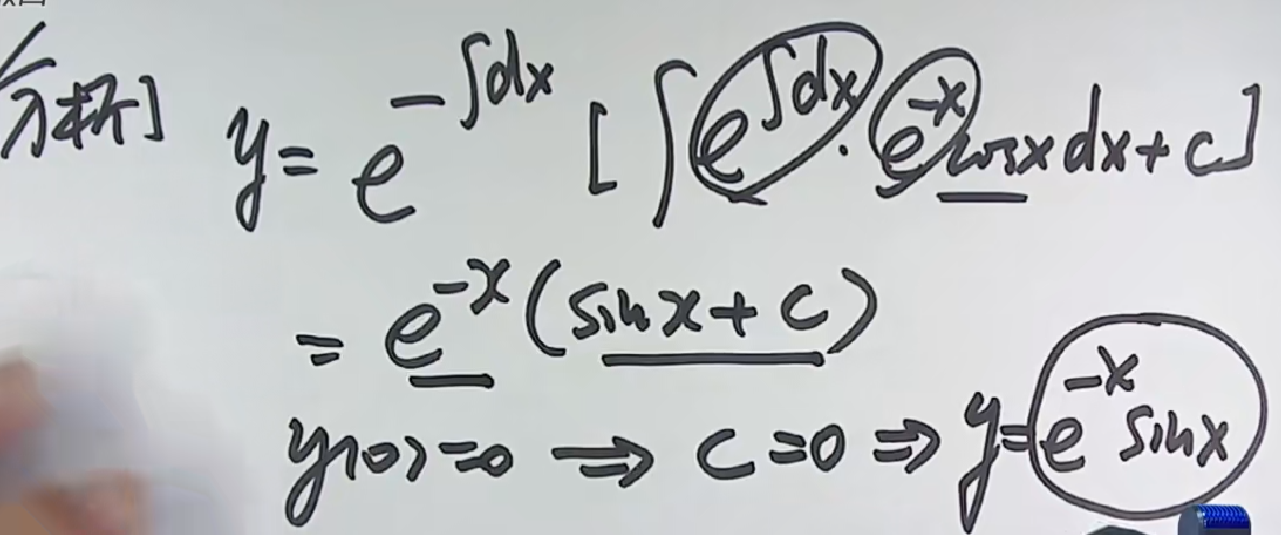 分析] y = e^{-∫dx} [∫e^{∫dx} · e^{-x} cosx dx + c]
= e^{-x} (sinx + c)
y(0) = 0 ⇒ c = 0 ⇒ y = e^{-x} sinx